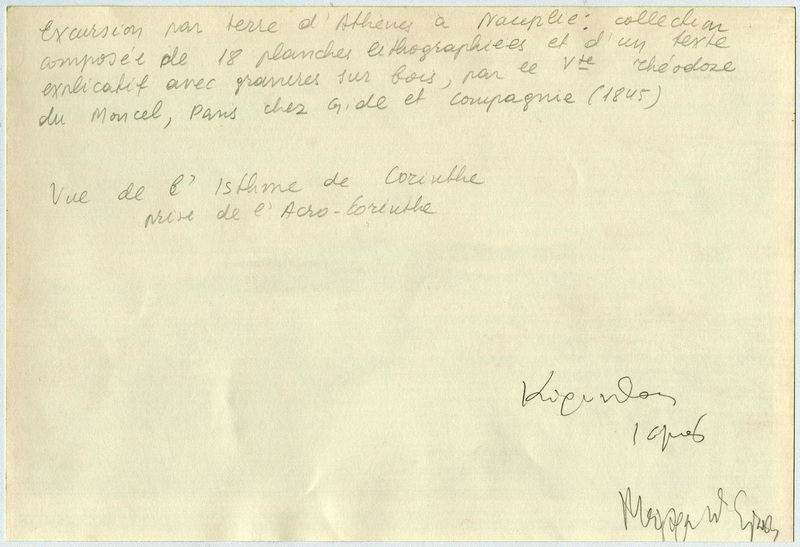 Excursion par terre d'Athènes à Nauplie: collection
composée de 18 planches lithographiées et d'un texte
explicatif avec gravures sur bois, par le Vte Théodoze
du Moncel, Paris chez Gide et Compagnie (1845)
Vue de l'Isthme de Corinthe
prise de l'Acro-Corinthe
Κόρινθος